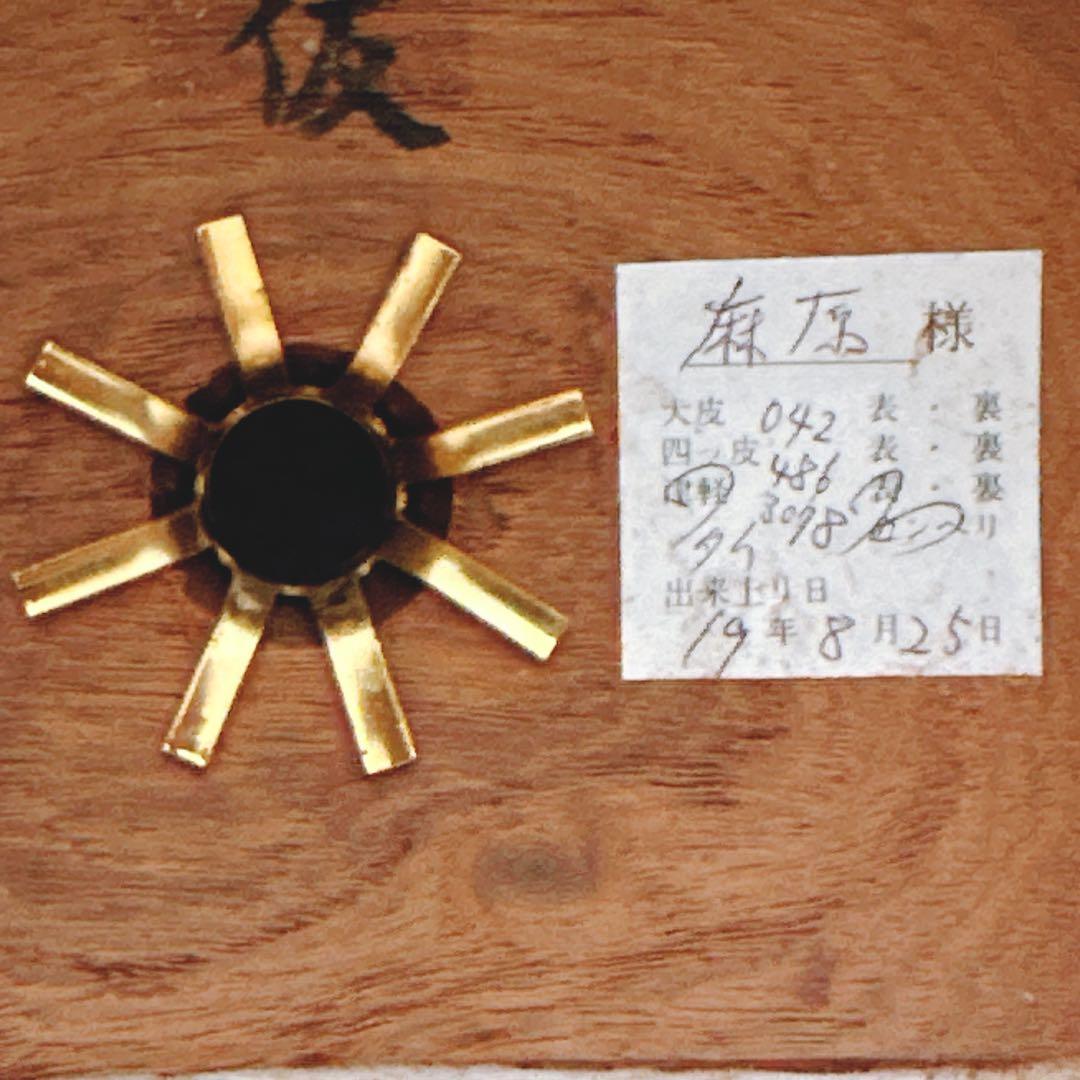 俊
麻原 様
大皮 042 表・裏
四ッ皮 486 表・裏
3098 裏
タイ
出来上り日
19年8月25日